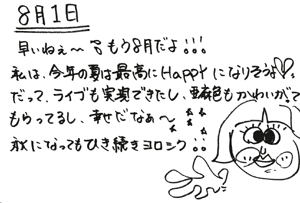 8月1日
早いねぇ〜 もう8月だよ!!!
私は、今年の夏は最高にHappyになりそうよ♡。
だって、ライブも実現できたし、亜希もかわいがって
もらってるし、幸せだなぁ〜
秋になってもひき続きヨロシク!!